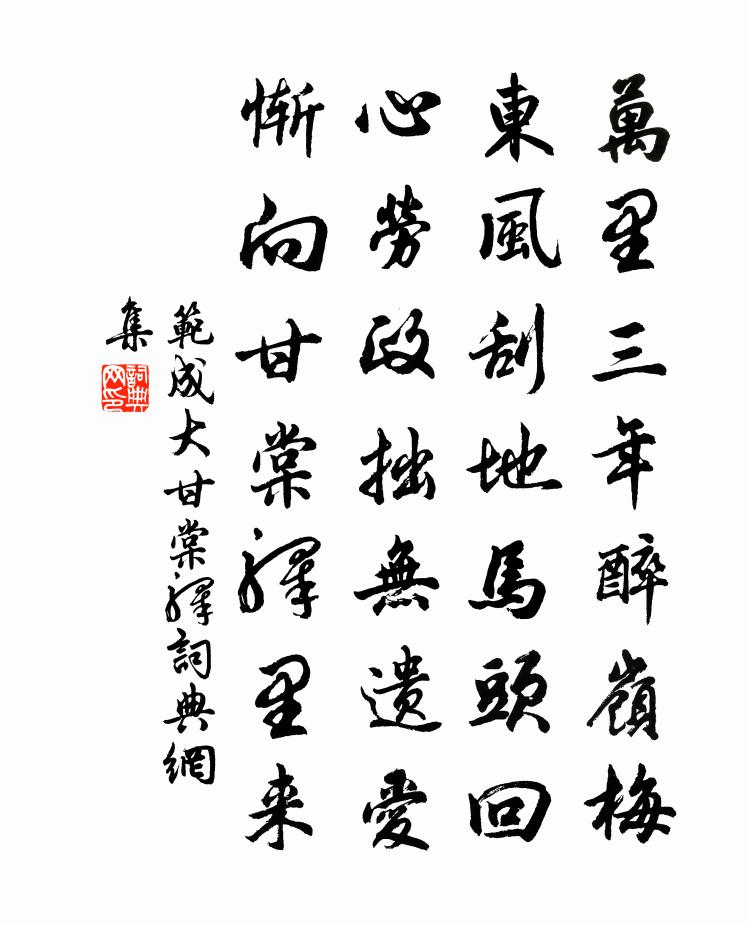 萬里三年醉嶺梅
東風刮地馬頭回
心勞政拙無遺愛
慚向甘棠驛里来
範成大甘棠驛詞典網
集
詞典
网印